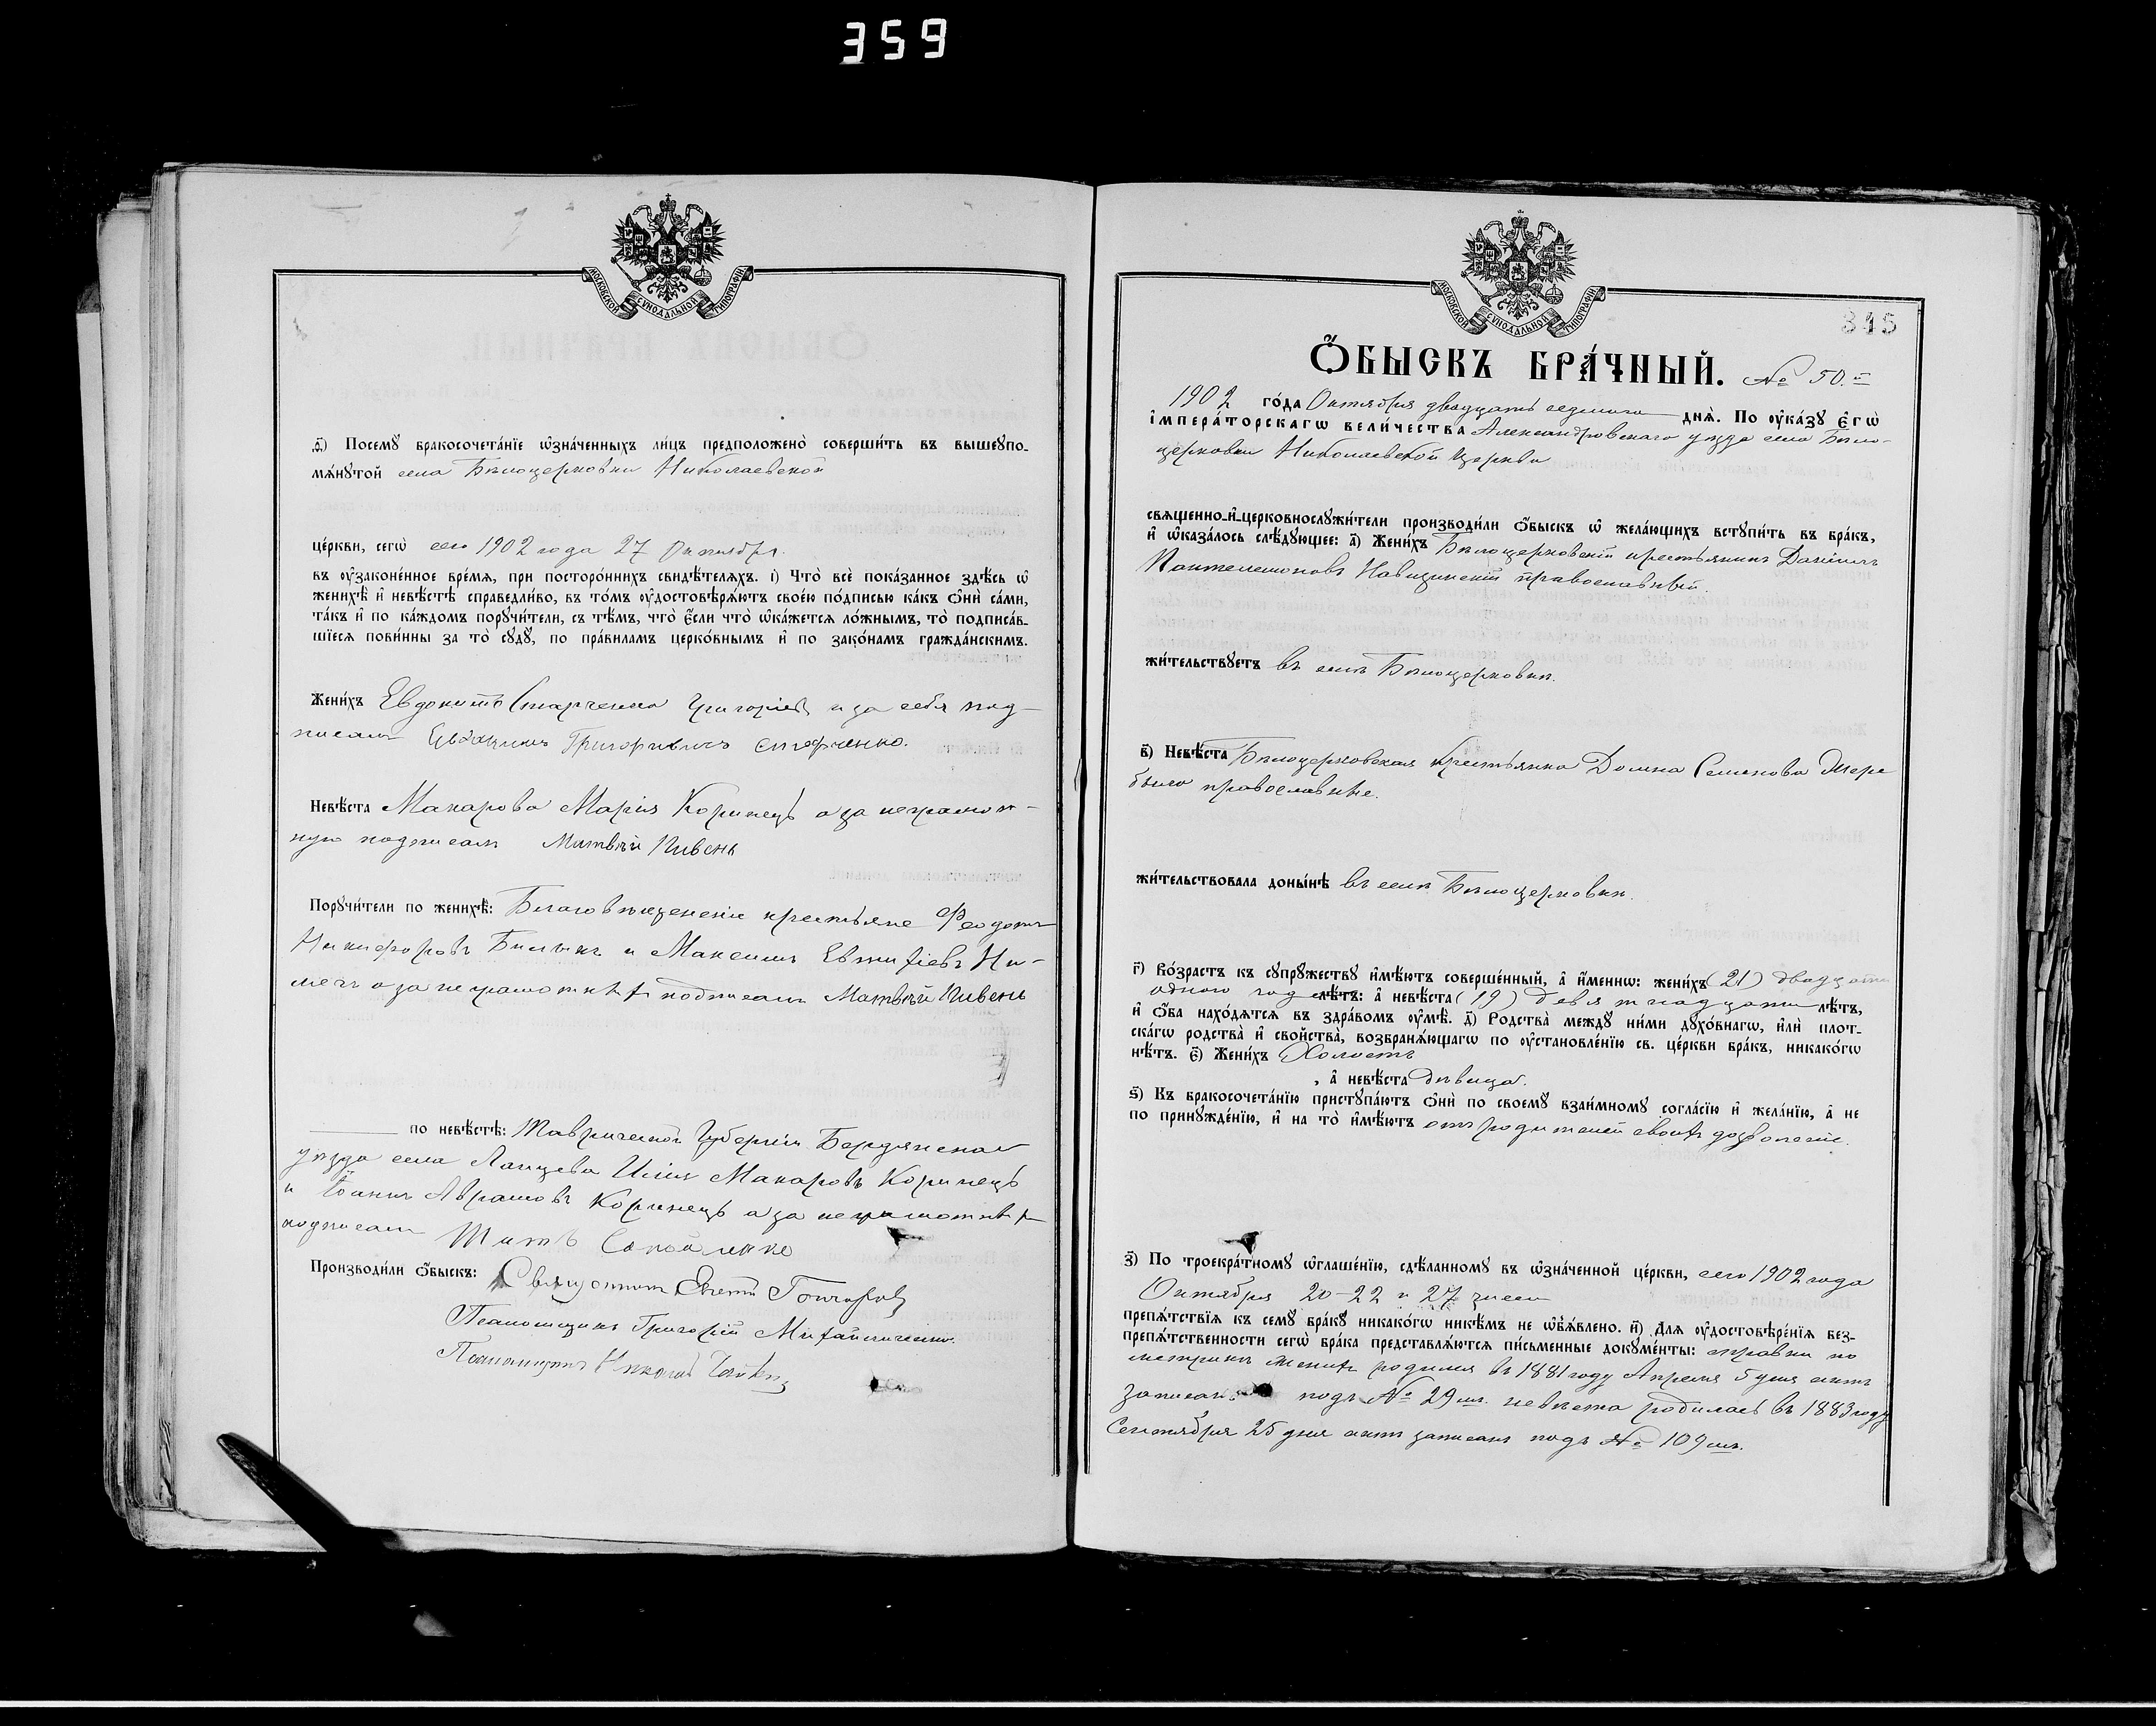 359
МОСКОВСКОЙ СУНОДАЛЬНОЙ ТИПОГРАФІИ
ѳ҃) Посемꙋ бракосочета́нїе ѡ҆зна́ченныхъ ли́цъ предположено̀ соверши́ть въ вышеꙋпо-
мѧ́нꙋтой села Бѣлоцерковки Николаевской
це́ркви, сегѡ̀ сего 1902 года 27 Октября.
въ ᲂу҆законе́нное вре́мѧ, при посторо́ннихъ свидѣ́телѧхъ. і) Что̀ всѐ пока́занное здѣ́сь ѡ҆
женихѣ̀ и҆ невѣ́стѣ справедли́во, въ то́мъ ᲂу҆достовѣрѧ́ютъ свое́ю по́дписью ка́къ ѻ҆нѝ са́ми,
та́къ и҆ по ка́ждомъ порꙋчи́тели, съ тѣ́мъ, что̀ є҆́сли что̀ ѡ҆ка́жетсѧ ло́жнымъ, то̀ подписа́в-
шїесѧ пови́нны за то̀ сꙋдꙋ̀, по пра́виламъ церко́внымъ и҆ по зако́намъ гражда́нскимъ.
Жени́хъ Евдокимъ Старченко Григоріев и за себя под-
писалъ Євдокимъ Григоривичъ Старченко.
Невѣ́ста Макарова Марія Коринецъ а за неграмот-
ную подписалъ Матвѣй Пивень
Порꙋчи́тели по женихѣ̀: Благовѣщенскіе крестьяне Феодотъ
Никифоровъ Билыкъ и Максимъ Евтихіевъ Ни-
мечъ а за неграмотныхъ подписалъ Матвѣй Пивень
по невѣ́стѣ: Таврической Губерніи Бердянскаго
уѣзда села Ланцева Илія Макаровъ Коринецъ
и Іоанн Аврамовъ Коринецъ а за неграмотныхъ
подписалъ Титъ
Производи́ли ѻ҆́быскъ: Священникъ Гончаровъ
Псаломщикъ Григорій Михайличенко.
Псаломщикъ Николай
МОСКОВСКОЙ СУНОДАЛЬНОЙ ТИПОГРАФІИ
345
Ѻ҆́БЫСКЪ БРА́ЧНЫЙ. № 50.й
1902 го́да Октября двадцать седьмого днѧ̀. По ᲂу҆ка́зꙋ Є҆гѡ̀
І҆мпера́торскагѡ вели́чества Александровскаго уѣзда села Бѣло-
церковки Николаевской Церкви
свѧщенно-и҆-церковнослꙋжи́тели производи́ли ѻ҆́быскъ ѡ҆ жела́ющихъ вступи́ть въ бра́къ,
и҆ ѡ҆каза́лось слѣ́дꙋющее: а҃) Жени́хъ Бѣлоцерковскій крестьянинъ Даніилъ
Пантелемоновъ Навицинскій православный.
жи́тельствꙋетъ въ селѣ Бѣлоцерковки.
в҃) Невѣ́ста Бѣлоцерковская крестьянка Домна Семенова Жере
било православные.
жи́тельствовала доны́нѣ въ селѣ Бѣлоцерковки.
г҃) Во́зрастъ къ сꙋпрꙋ́жествꙋ и҆мѣ́ютъ соверше́нный, а҆ и҆́меннѡ: жени́хъ (21) двадцать
одного год лѣ́тъ: а҆ невѣ́ста (19) девятнадцати лѣ́тъ,
и҆ ѻ҆́ба нахо́дѧтсѧ въ здра́вомъ ᲂу҆мѣ̀. д҃) Родства̀ междꙋ̀ ни́ми дꙋхо́внагѡ, и҆лѝ плот-
ска́гѡ родства̀ и҆ сво́йства̀, возбранѧ́ющагѡ по ᲂу҆становле́нїю св. це́ркви бра́къ, никако́гѡ
нѣ́тъ. є҃) Жени́хъ Холостъ
, а҆ невѣ́ста дѣвица.
ѕ҃) Къ бракосочета́нїю пристꙋпа́ютъ ѻ҆нѝ по своемꙋ̀ взаи́мномꙋ согла́сїю и҆ жела́нїю, а҆ не
по принꙋжде́нїю, и҆ на то̀ и҆мѣ́ютъ отъ родителей своихъ дозволеніе.
з҃) По троекра́тномꙋ ѡ҆глаше́нїю, сдѣ́ланномꙋ въ ѡ҆зна́ченной це́ркви, сего 1902 года
Октября 20-22 и 27 числа
препѧ́тствїѧ къ семꙋ̀ бра́кꙋ никако́гѡ никѣ́мъ не ѡ҆б̾ѧ́влено. и҃) Для ᲂу҆достовѣре́нїѧ без-
препѧ́тственности сегѡ̀ бра́ка представлѧ́ютсѧ пи́сьменные докꙋме́нты: справки по
метрикѣ жених родился въ 1881 году Апреля 5 дня актъ
записанъ подъ № 29 мъ. невѣста родилась въ 1883 году
Сентября 25 дня актъ записанъ подъ № 109 мъ.